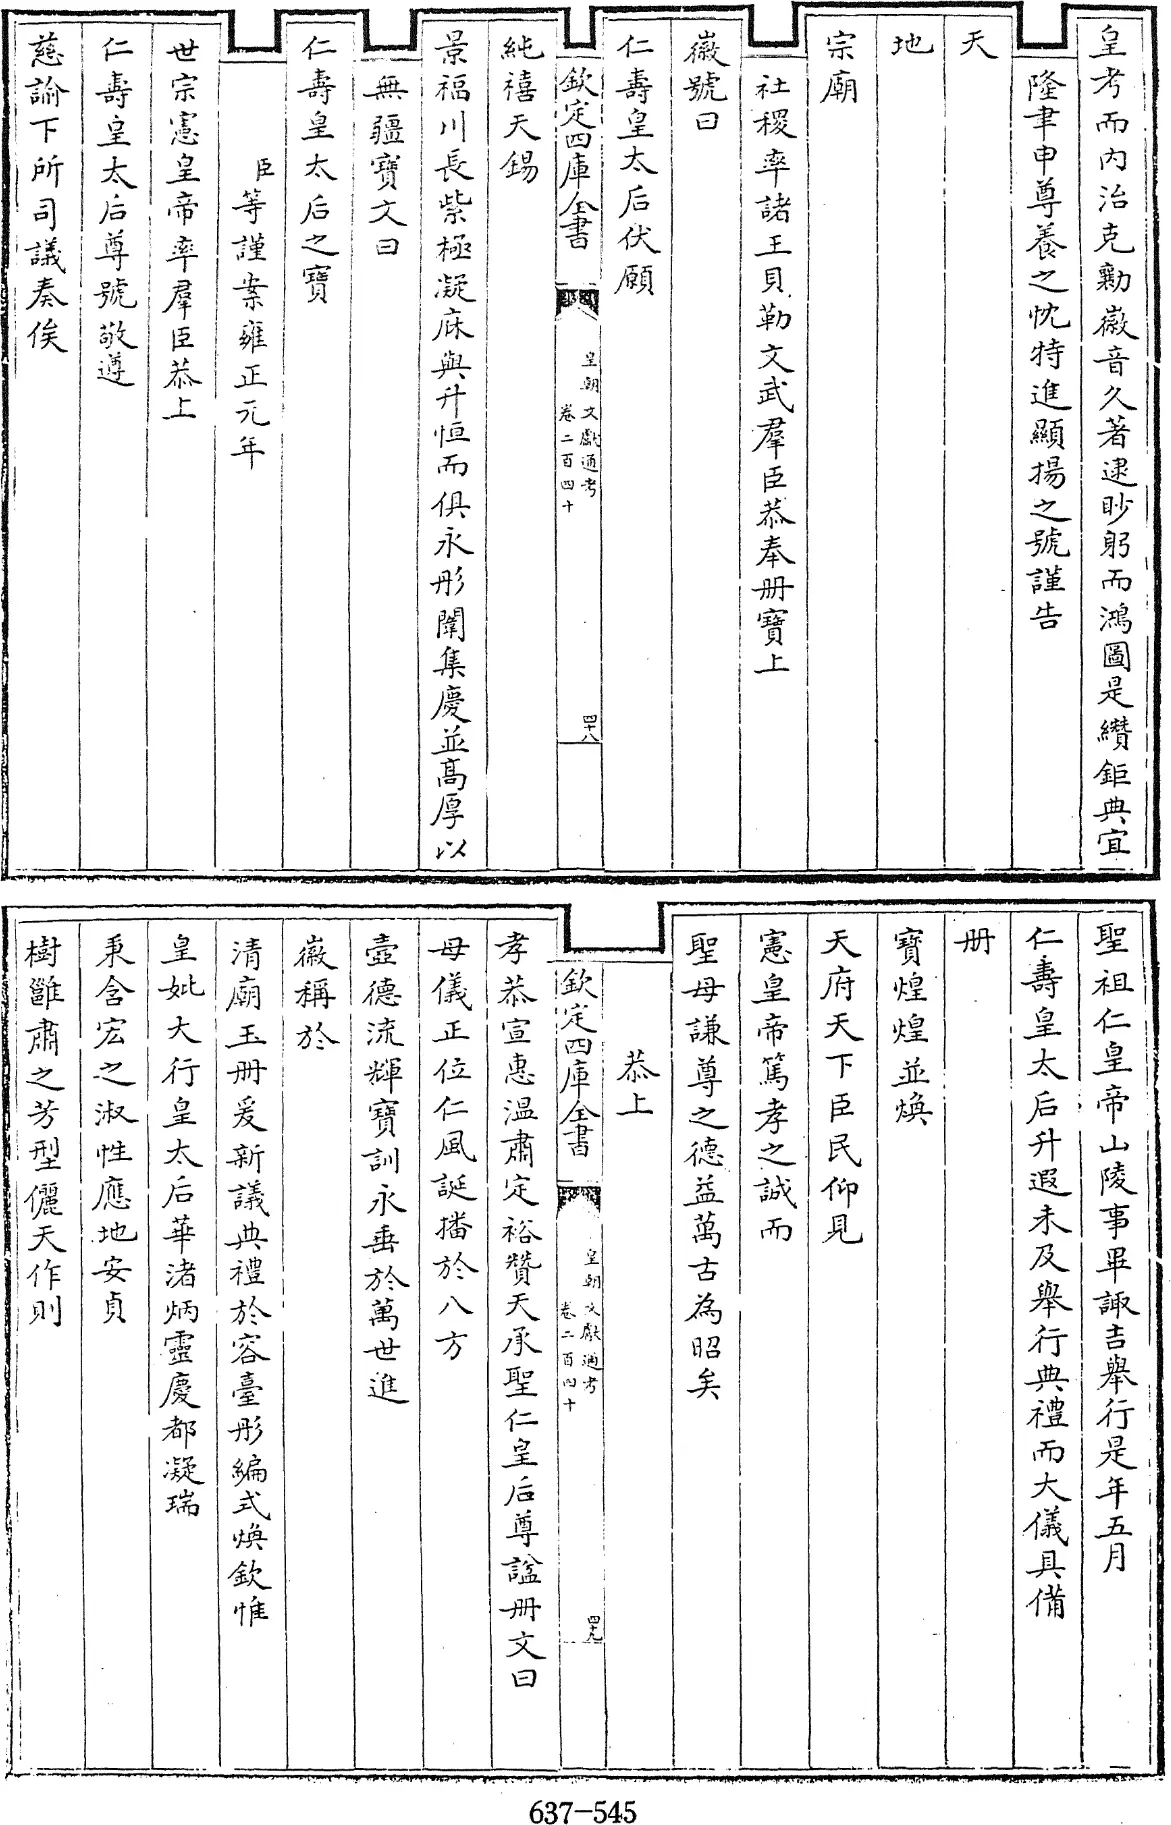 皇考而内治克勷徽音久著逮眇躬而鴻圖是纘鉅典宜
隆聿申尊養之忱特進顯揚之號謹告
天
地
宗廟
社稷率諸王貝勒文武羣臣恭奉册寶上
徽號曰
仁壽皇太后伏願
欽定四庫全書
皇朝文獻通考
卷二百四十
四十八
純禧天錫
景福川長紫極凝庥與升恒而俱永彤闈集慶並高厚以
無疆寶文曰
仁壽皇太后之寶
臣等謹案雍正元年
世宗憲皇帝率羣臣恭上
仁壽皇太后尊號敬遵
慈諭下所司議奏俟
聖祖仁皇帝山陵事畢諏吉舉行是年五月
仁壽皇太后升遐未及舉行典禮而大儀具備
册
寶煌煌並煥
天府天下臣民仰見
憲皇帝篤孝之誠而
聖母謙尊之德益萬古為昭矣
恭上
欽定四庫全書
皇朝文獻通考
卷二百四十
四十九
孝恭宣惠温肅定裕贊天承聖仁皇后尊諡册文曰
母儀正位仁風誕播於八方
壼德流輝寶訓永垂於萬世進
徽稱於
清廟玉册爰新議典禮於容臺彤編式煥欽惟
皇妣大行皇太后華渚炳靈慶都凝瑞
秉含宏之淑性應地安貞
樹雝肅之芳型儷天作則
637-545